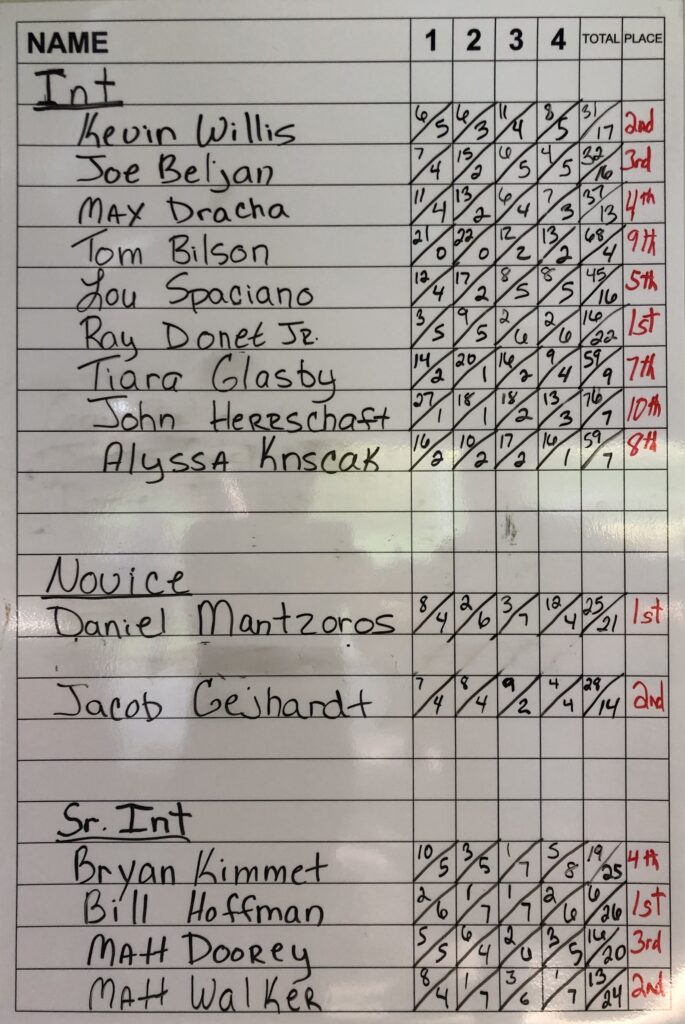 NAME 1 2 3 4 TOTAL PLACE
Int
Kevin Willis 6/5 6/3 11/4 8/5 31/17 2nd
Joe Beljan 7/4 15/2 6/5 4/5 32/16 3rd
MAX Dracha 11/4 13/2 6/4 7/3 37/13 4th
Tom Bilson 21/0 22/0 12/2 13/2 68/4 9th
Lou Spaciano 12/4 17/2 8/5 8/5 45/16 5th
Ray Donet JR. 3/5 9/5 2/6 2/6 16/22 1st
Tiara Glasby 14/2 20/1 16/2 9/4 59/9 7th
John HERRSchaft 27/1 18/1 18/2 13/3 76/7 10th
Alyssa Knscak 16/2 10/2 17/2 16/1 59/7 8th
Novice
Daniel Mantzoros 8/4 2/6 3/7 12/4 25/21 1st
Jacob Gejhardt 7/4 8/4 9/2 4/4 28/14 2nd
Sr. Int
Bryan Kimmet 10/5 3/5 1/7 5/8 19/25 4th
Bill Hoffman 2/6 1/7 1/7 2/6 6/26 1st
MATT DOOREY 5/5 6/4 2/6 3/5 16/20 3rd
MATT WALKER 8/4 1/7 3/6 1/7 13/24 2nd